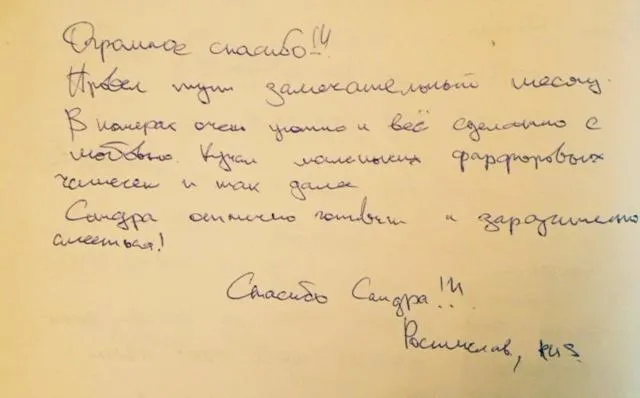 Огромное спасибо!!!
Провел тут замечательный месяц.
В номерах очен уютно и всё сделанно с
любовью. Куча маленьких фарфоровых
чашечек и так дале
Сандра отлично готовит и заразително
смеёться!
Спасибо Сандра!!!
Ростислав,